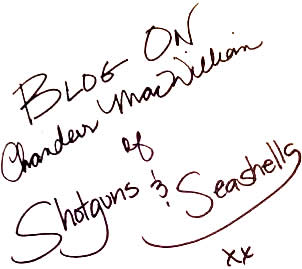 BLOG ON
Chandler MacWilliam
of
Shotguns & Seashells
xx